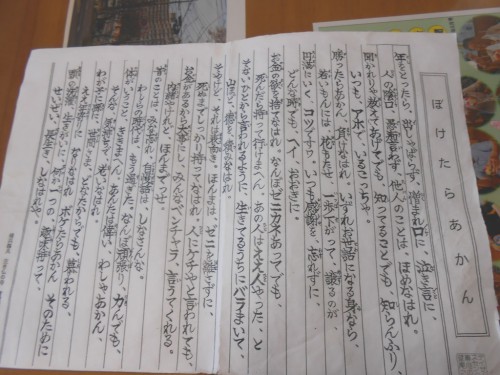 ぼけたらあかん
年をとったら、出しゃばらず、憎まれ口に、泣き言に、
人の陰口、愚痴言わず、他人のことは、ほめなはれ。
聞かれりゃ教えてあげても、知ってることでも、知らんふり、
いつも、アホで、いるこっちゃ。
勝ったらあかん、負けなはれ。いずれお世話になる身なら、
若いもんには、花もたせ、一歩下がって、譲るのが、
円満にいく、コツですわ。いつも感謝を、忘れずに、
どんな時でも、ヘイ、おおきに。
お金の欲を捨てなはれ。なんぼゼニカネあっても、
死んだら持って行けまへん。あの人はええ人やった、と
そないひとから言われるように、生きてるうちにバラまいて、
山ほど、徳を、積みなはれ。
そやけど、それは表向き。ほんまは、ゼニを離さずに、
死ぬまでしっかり持ってなはれ。人にケチやと言われても、
お金があるから大事にし、みんなベンチャラ、言うてくれる。
内緒やけれど、ほんまでっせ。
昔のことは、みな忘れ、自慢話は、しなさんな。
わしらの時代は、もう過ぎた。なんぼ頑張り、力んでも、
体がいうこと、ききまへん。あんたは偉い、わしゃあかん、
そんな気持ちで、おりなはれ。
わが子に孫に、世間さま、どなたからでも、慕われる、
ええ年寄りに、なりなはれ。ボケたらあかん、そのために、
頭の洗濯、生きがいに、何か一つの、趣味持って、
せいぜい、長生き、しなはれや。